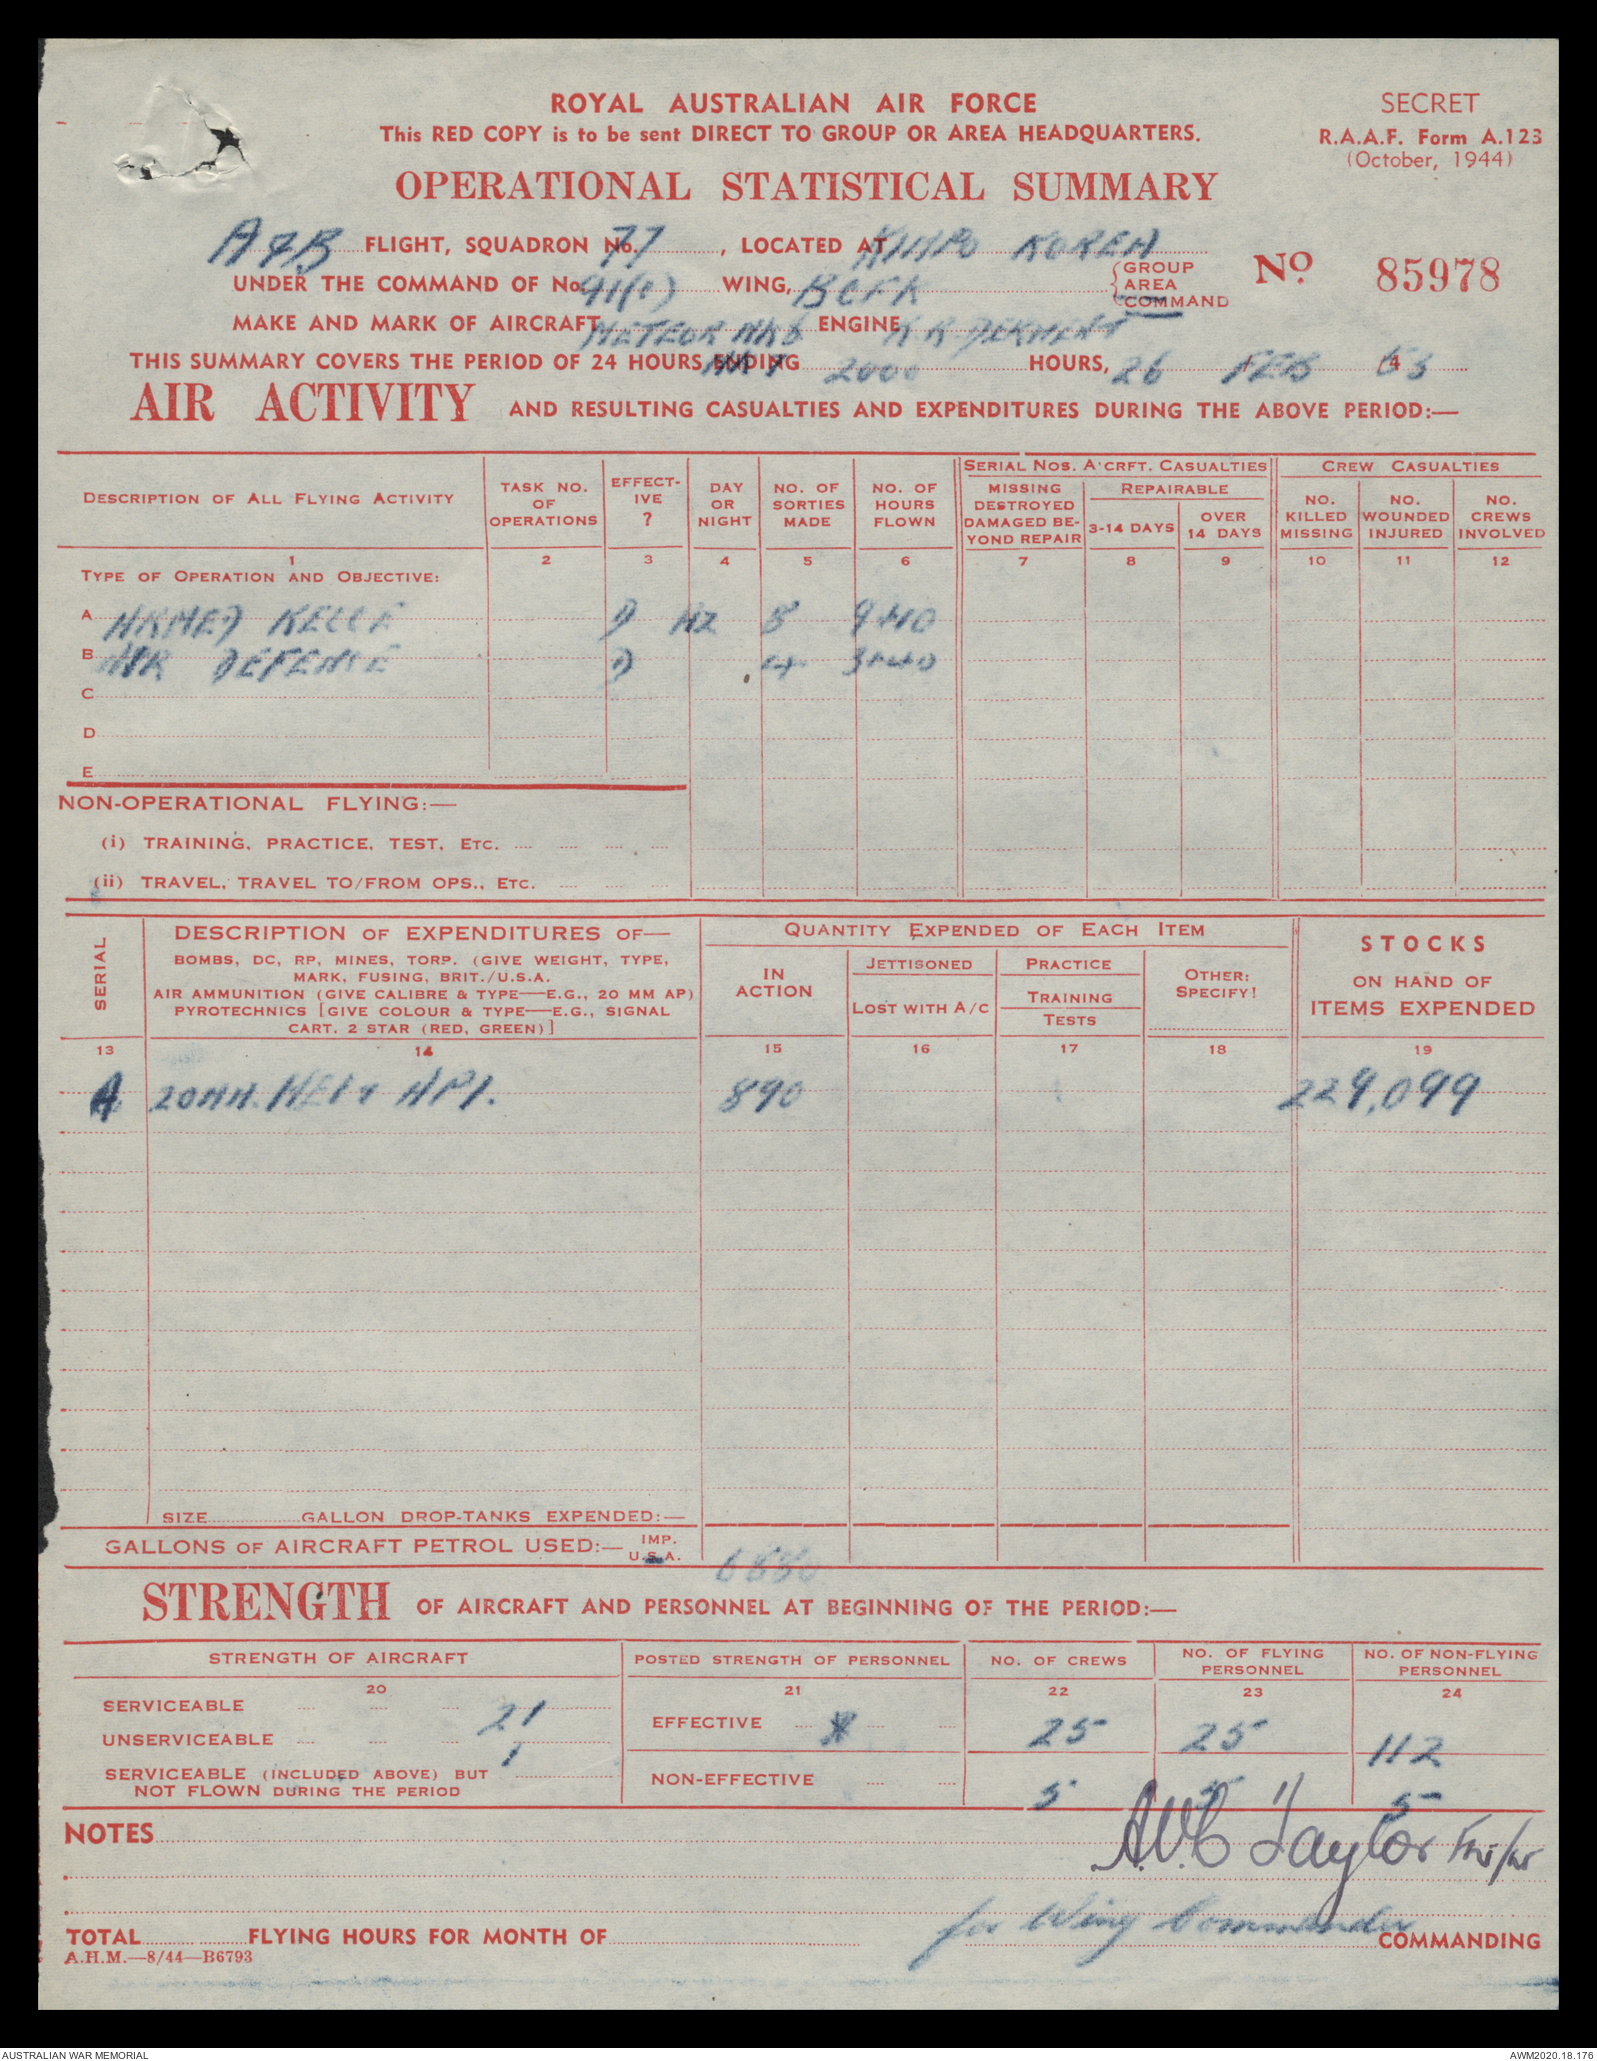 ROYAL AUSTRALIAN AIR FORCE
This RED COPY is to be sent DIRECT TO GROUP OR AREA HEADQUARTERS.
SECRET
R.A.A.F. Form A.123
(October, 1944)
OPERATIONAL STATISTICAL SUMMARY
A & B FLIGHT, SQUADRON No. 77, LOCATED AT KIMPO KOREA
UNDER THE COMMAND OF No. 91(C) WING, BCFK GROUP AREA COMMAND
No 85978
MAKE AND MARK OF AIRCRAFT METEOR MK 8 ENGINE R.R. DERWENT
THIS SUMMARY COVERS THE PERIOD OF 24 HOURS ENDING 2000 HOURS, 26 FEB 53
AIR ACTIVITY AND RESULTING CASUALTIES AND EXPENDITURES DURING THE ABOVE PERIOD:—
DESCRIPTION OF ALL FLYING ACTIVITY
TASK NO. OF OPERATIONS
EFFECT-IVE ?
DAY OR NIGHT
NO. OF SORTIES MADE
NO. OF HOURS FLOWN
SERIAL NOS. A'CRFT. CASUALTIES
MISSING DESTROYED DAMAGED BE-YOND REPAIR
REPAIRABLE
3-14 DAYS
OVER 14 DAYS
CREW CASUALTIES
NO. KILLED MISSING
NO. WOUNDED INJURED
NO. CREWS INVOLVED
1 2 3 4 5 6 7 8 9 10 11 12
TYPE OF OPERATION AND OBJECTIVE:
A ARMED RECCE D 8 9+10
B AIR DEFENSE D 4 3+40
C
D
E
NON-OPERATIONAL FLYING:—
(i) TRAINING, PRACTICE, TEST, ETC.
(ii) TRAVEL, TRAVEL TO/FROM OPS., ETC.
SERIAL
DESCRIPTION OF EXPENDITURES OF—
BOMBS, DC, RP, MINES, TORP. (GIVE WEIGHT, TYPE,
MARK, FUSING, BRIT./U.S.A.
AIR AMMUNITION (GIVE CALIBRE & TYPE—E.G., 20 MM AP)
PYROTECHNICS [GIVE COLOUR & TYPE—E.G., SIGNAL
CART. 2 STAR (RED, GREEN)]
QUANTITY EXPENDED OF EACH ITEM
IN ACTION
JETTISONED
LOST WITH A/C
PRACTICE
TRAINING
TESTS
OTHER: SPECIFY!
STOCKS
ON HAND OF
ITEMS EXPENDED
13 14 15 16 17 18 19
A 20MM. HEI & API. 890 229,099
SIZE GALLON DROP-TANKS EXPENDED:—
GALLONS OF AIRCRAFT PETROL USED:— IMP. U.S.A. 6880
STRENGTH OF AIRCRAFT AND PERSONNEL AT BEGINNING OF THE PERIOD:—
STRENGTH OF AIRCRAFT
POSTED STRENGTH OF PERSONNEL
NO. OF CREWS
NO. OF FLYING PERSONNEL
NO. OF NON-FLYING PERSONNEL
20 21 22 23 24
SERVICEABLE 21
UNSERVICEABLE 1
SERVICEABLE (INCLUDED ABOVE) BUT
NOT FLOWN DURING THE PERIOD
EFFECTIVE 25 25 112
NON-EFFECTIVE 5 5 5
NOTES
Taylor
for Wing Commander
TOTAL FLYING HOURS FOR MONTH OF COMMANDING
A.H.M.—8/44—B6793
AUSTRALIAN WAR MEMORIAL
AWM2020.18.176